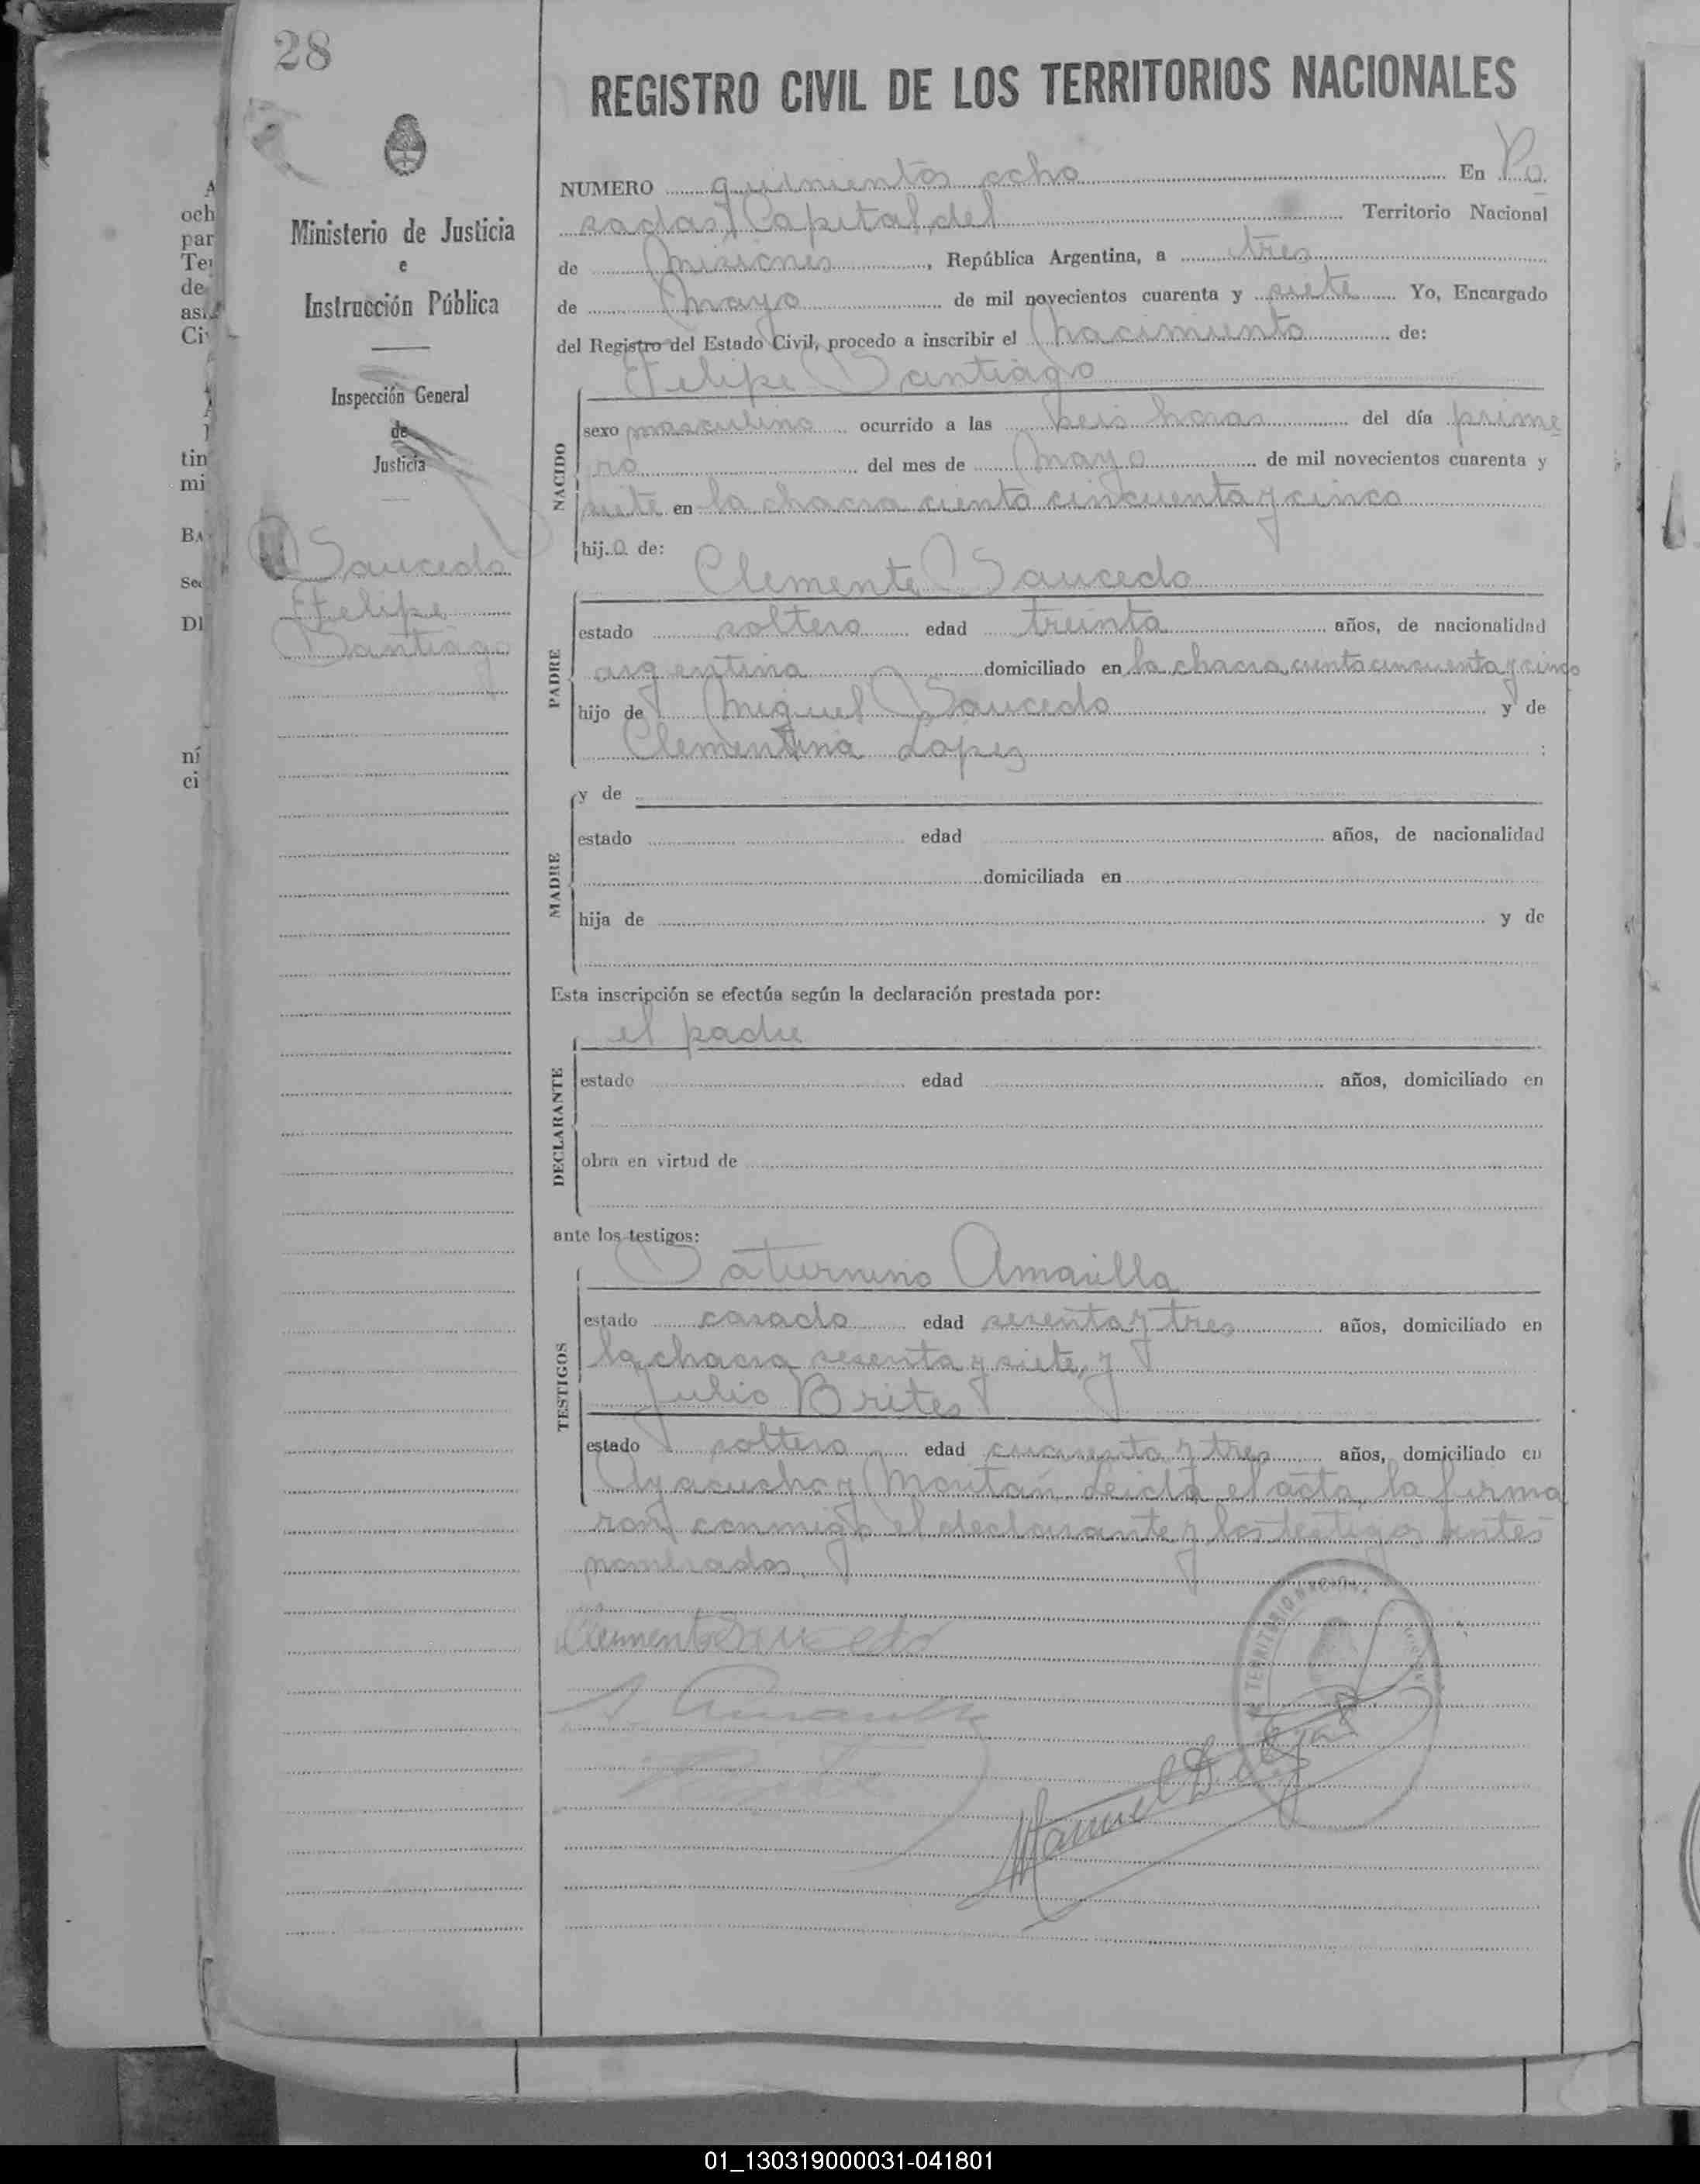 28
REGISTRO CIVIL DE LOS TERRITORIOS NACIONALES
Ministerio de Justicia
e
Instrucción Pública
Inspección General
de
Justicia
Saucedo
Felipe
Santiago
NUMERO quinientos ocho En Po
sadas, Capital del Territorio Nacional
de Misiones, República Argentina, a tres
de Mayo de mil novecientos cuarenta y siete Yo, Encargado
del Registro del Estado Civil, procedo a inscribir el nacimiento de:
Felipe Santiago
NACIDO
sexo masculino ocurrido a las seis horas del día prime
ro del mes de Mayo de mil novecientos cuarenta y
siete en la chacra ciento cincuenta y cinco
hijo de:
Clemente Saucedo
PADRE
estado soltero edad treinta años, de nacionalidad
argentina domiciliado en la chacra ciento cincuenta y cinco
hijo de Miguel Saucedo y de
Clementina Lopez ;
MADRE
y de
estado edad años, de nacionalidad
domiciliada en
hija de y de
Esta inscripción se efectúa según la declaración prestada por:
el padre
DECLARANTE
estado edad años, domiciliado en
obra en virtud de
ante los testigos:
Saturnino Amarilla
TESTIGOS
estado casado edad sesenta y tres años, domiciliado en
la chacra sesenta y siete, y
Julio Brites
estado soltero edad cuarenta y tres años, domiciliado en
Ayacucho y Moritán. Leída el acta, la firma
ron conmigo el declarante y los testigos antes
nombrados.
Clemente Saucedo
S. Amarilla
Manuel D.
och
par
Ter
de
asi
Ci
tin
mi
BA
Sec
DI
ní
ci
01_130319000031-041801